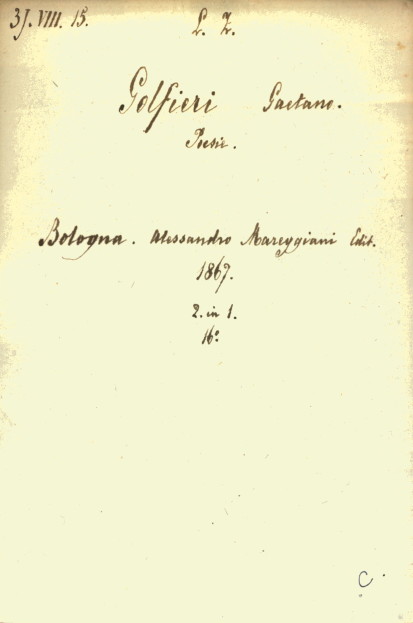 3J. VIII. 15.
L. Z.
Golfieri Gaetano.
Poesie.
Bologna. Alessandro Mareggiani Edit.
1867.
2. in 1.
16°
C